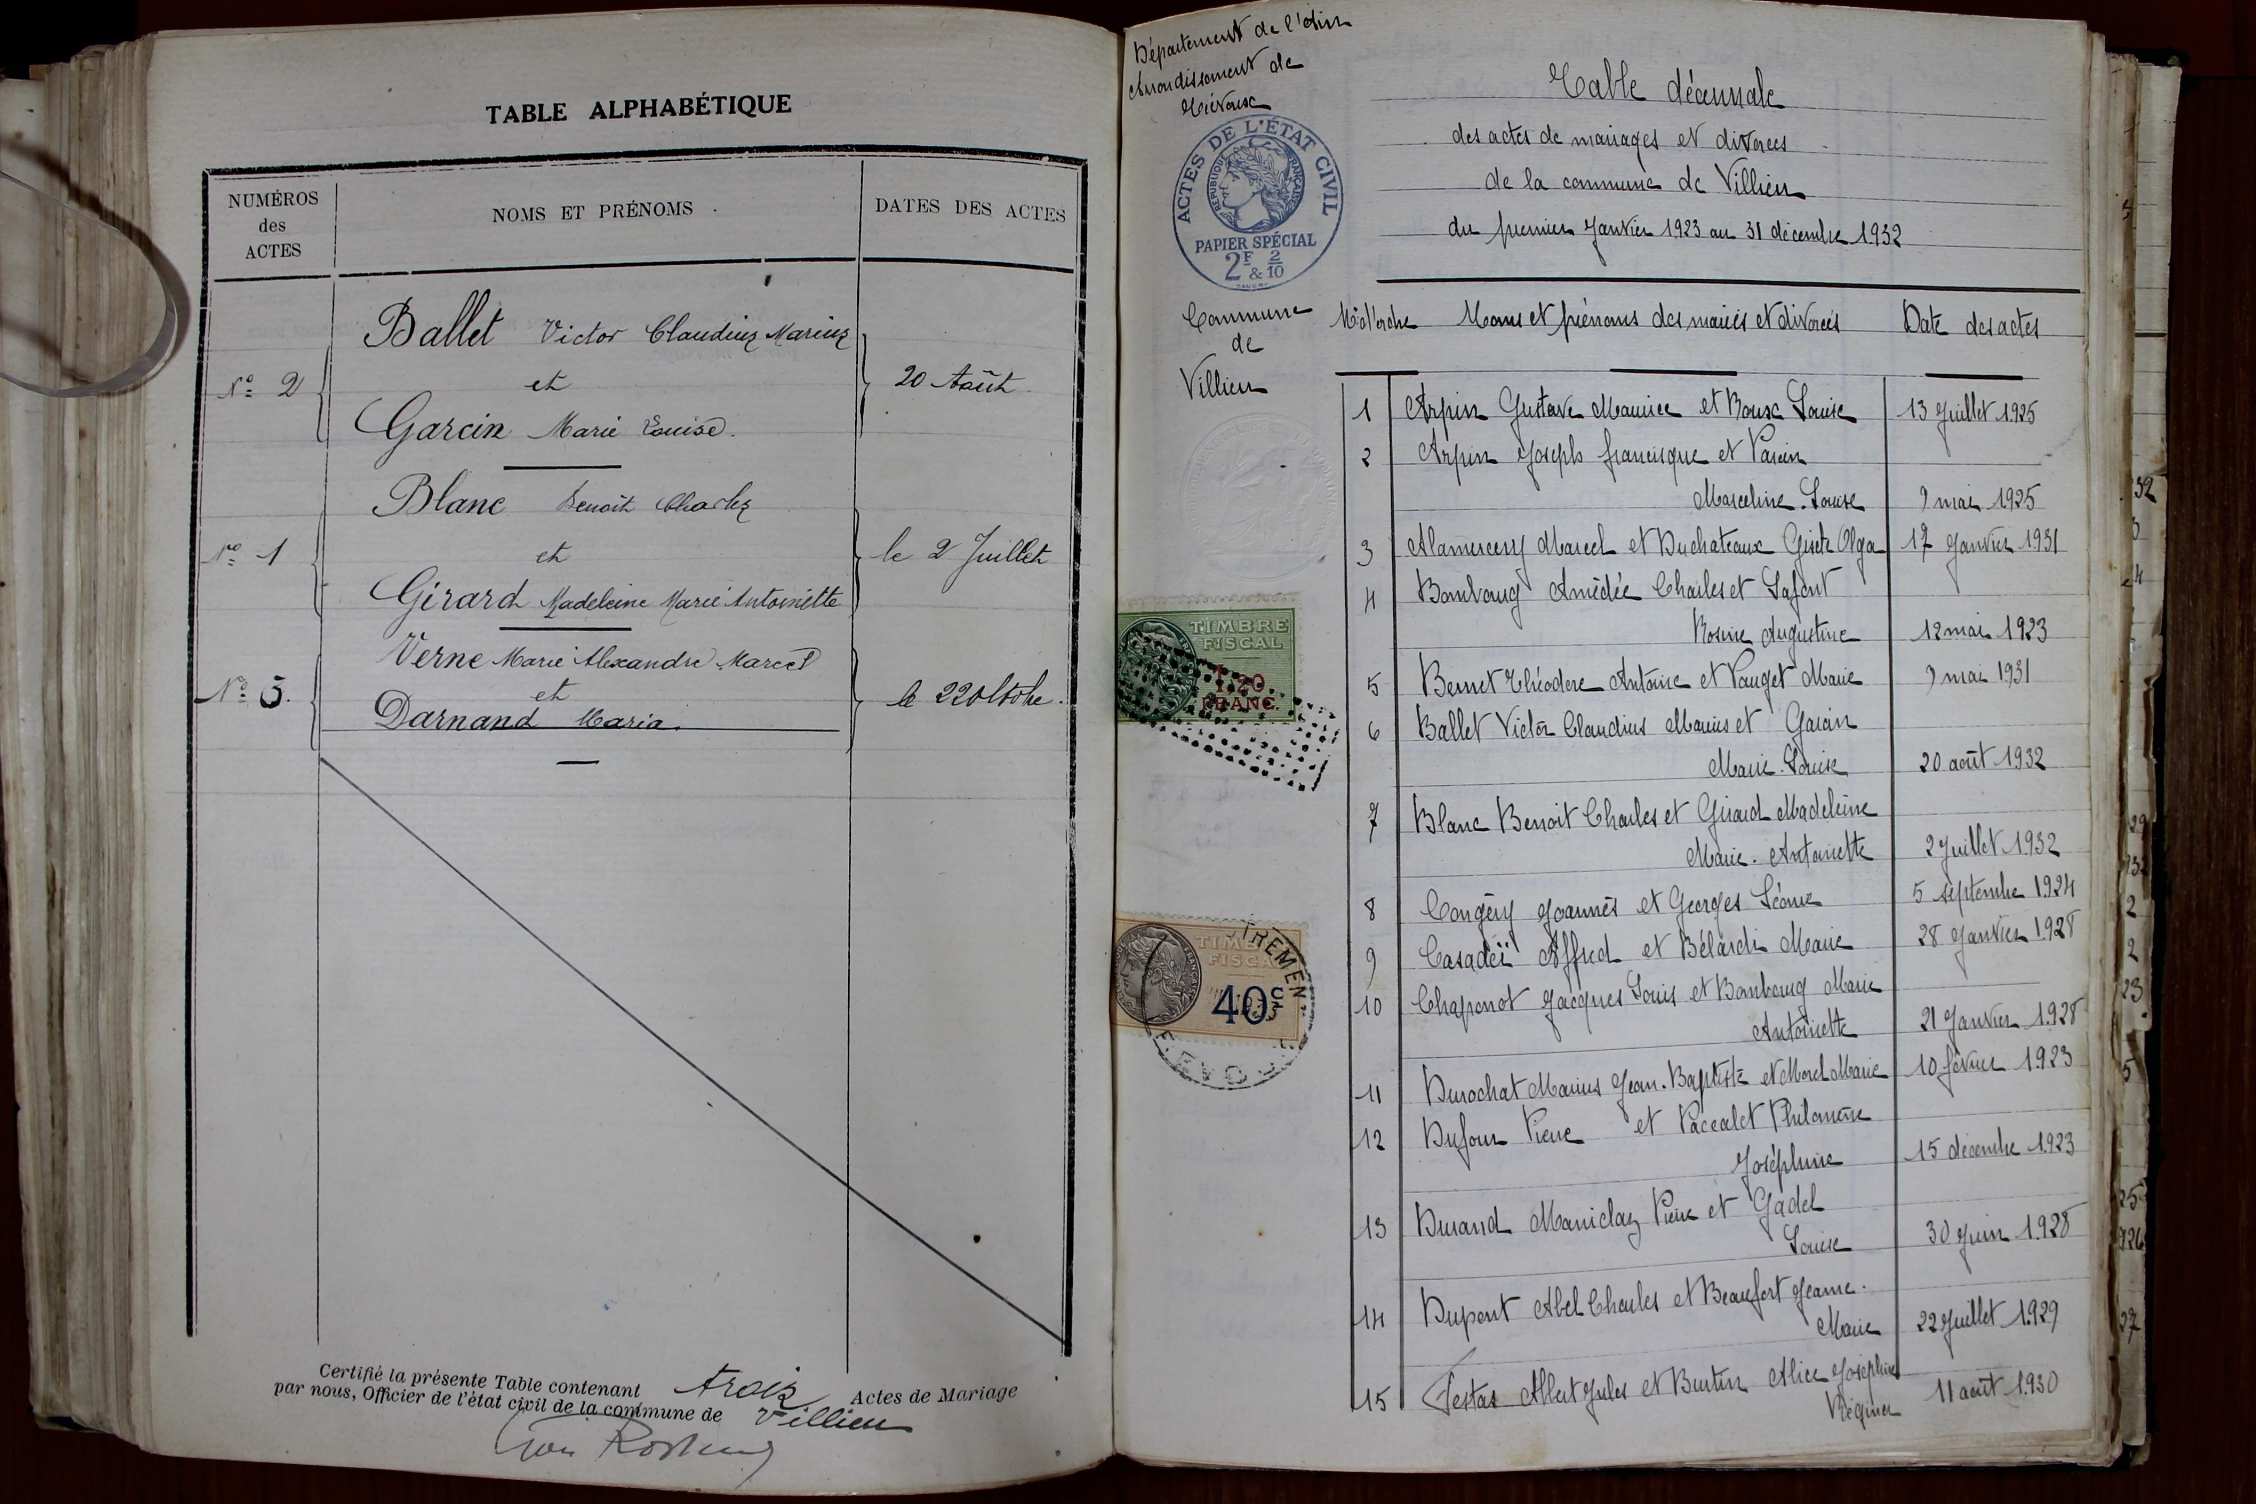 TABLE ALPHABÉTIQUE
NUMÉROS des ACTES
NOMS ET PRÉNOMS
DATES DES ACTES
Ballet Victor Claudius Marius
Nº 2 et 20 Août
Garcin Marie Louise.
Blanc Benoît Charles
Nº 1 et le 2 Juillet
Girard Madeleine Marie Antoinette
Verne Marie Alexandre Marcel
Nº 3. et le 22 Octobre.
Darnand Maria.
Certifié la présente Table contenant trois Actes de Mariage
par nous, Officier de l'état civil de la commune de Villieu
Département de l'Ain
Arrondissement de
Trévoux
ACTES DE L'ÉTAT CIVIL
RÉPUBLIQUE FRANÇAISE
PAPIER SPÉCIAL
2F & 2/10
Commune
de
Villieu
TIMBRE
FISCAL
1.20
FRANC
TIMBRE
FISCAL
40c
Table décennale
des actes de mariages et divorces
de la commune de Villieu
du premier Janvier 1923 au 31 décembre 1932
Nº d'ordre Noms et prénoms des mariés et divorcés Date des actes
1 Arpin Gustave Maurice et Roux Louise 13 Juillet 1925
2 Arpin Joseph francisque et Parcin
Marceline-Louise 9 mai 1925
3 Alamercery Marcel et Duchateaux Gisèle Olga 17 Janvier 1931
4 Bombourg Amédée Charles et Lafont
Rosine Augustine 12 mai 1923
5 Bernet Théodore Antoine et Pauget Marie 9 mai 1931
6 Ballet Victor Claudius Marius et Garcin
Marie-Louise 20 août 1932
7 Blanc Benoit Charles et Girard Madeleine
Marie-Antoinette 2 Juillet 1932
8 Congéry Joannès et Georges Léonie 5 septembre 1924
9 Casadeï Alfred et Bélardi Marie 28 Janvier 1928
10 Chaponot Jacques Louis et Bombourg Marie
Antoinette 21 Janvier 1928
11 Durochat Marius Jean-Baptiste et Morel Marie 10 février 1923
12 Dufour Pierre et Paccalet Philomène
Joséphine 15 décembre 1923
13 Durand Maniclaz Pierre et Gadel
Louise 30 Juin 1928
14 Dupont Abel Charles et Beaufort Jeanne-
Marie 22 Juillet 1929
15 Festas Albert Jules et Burtin Alice Joséphine
Régina 11 août 1930